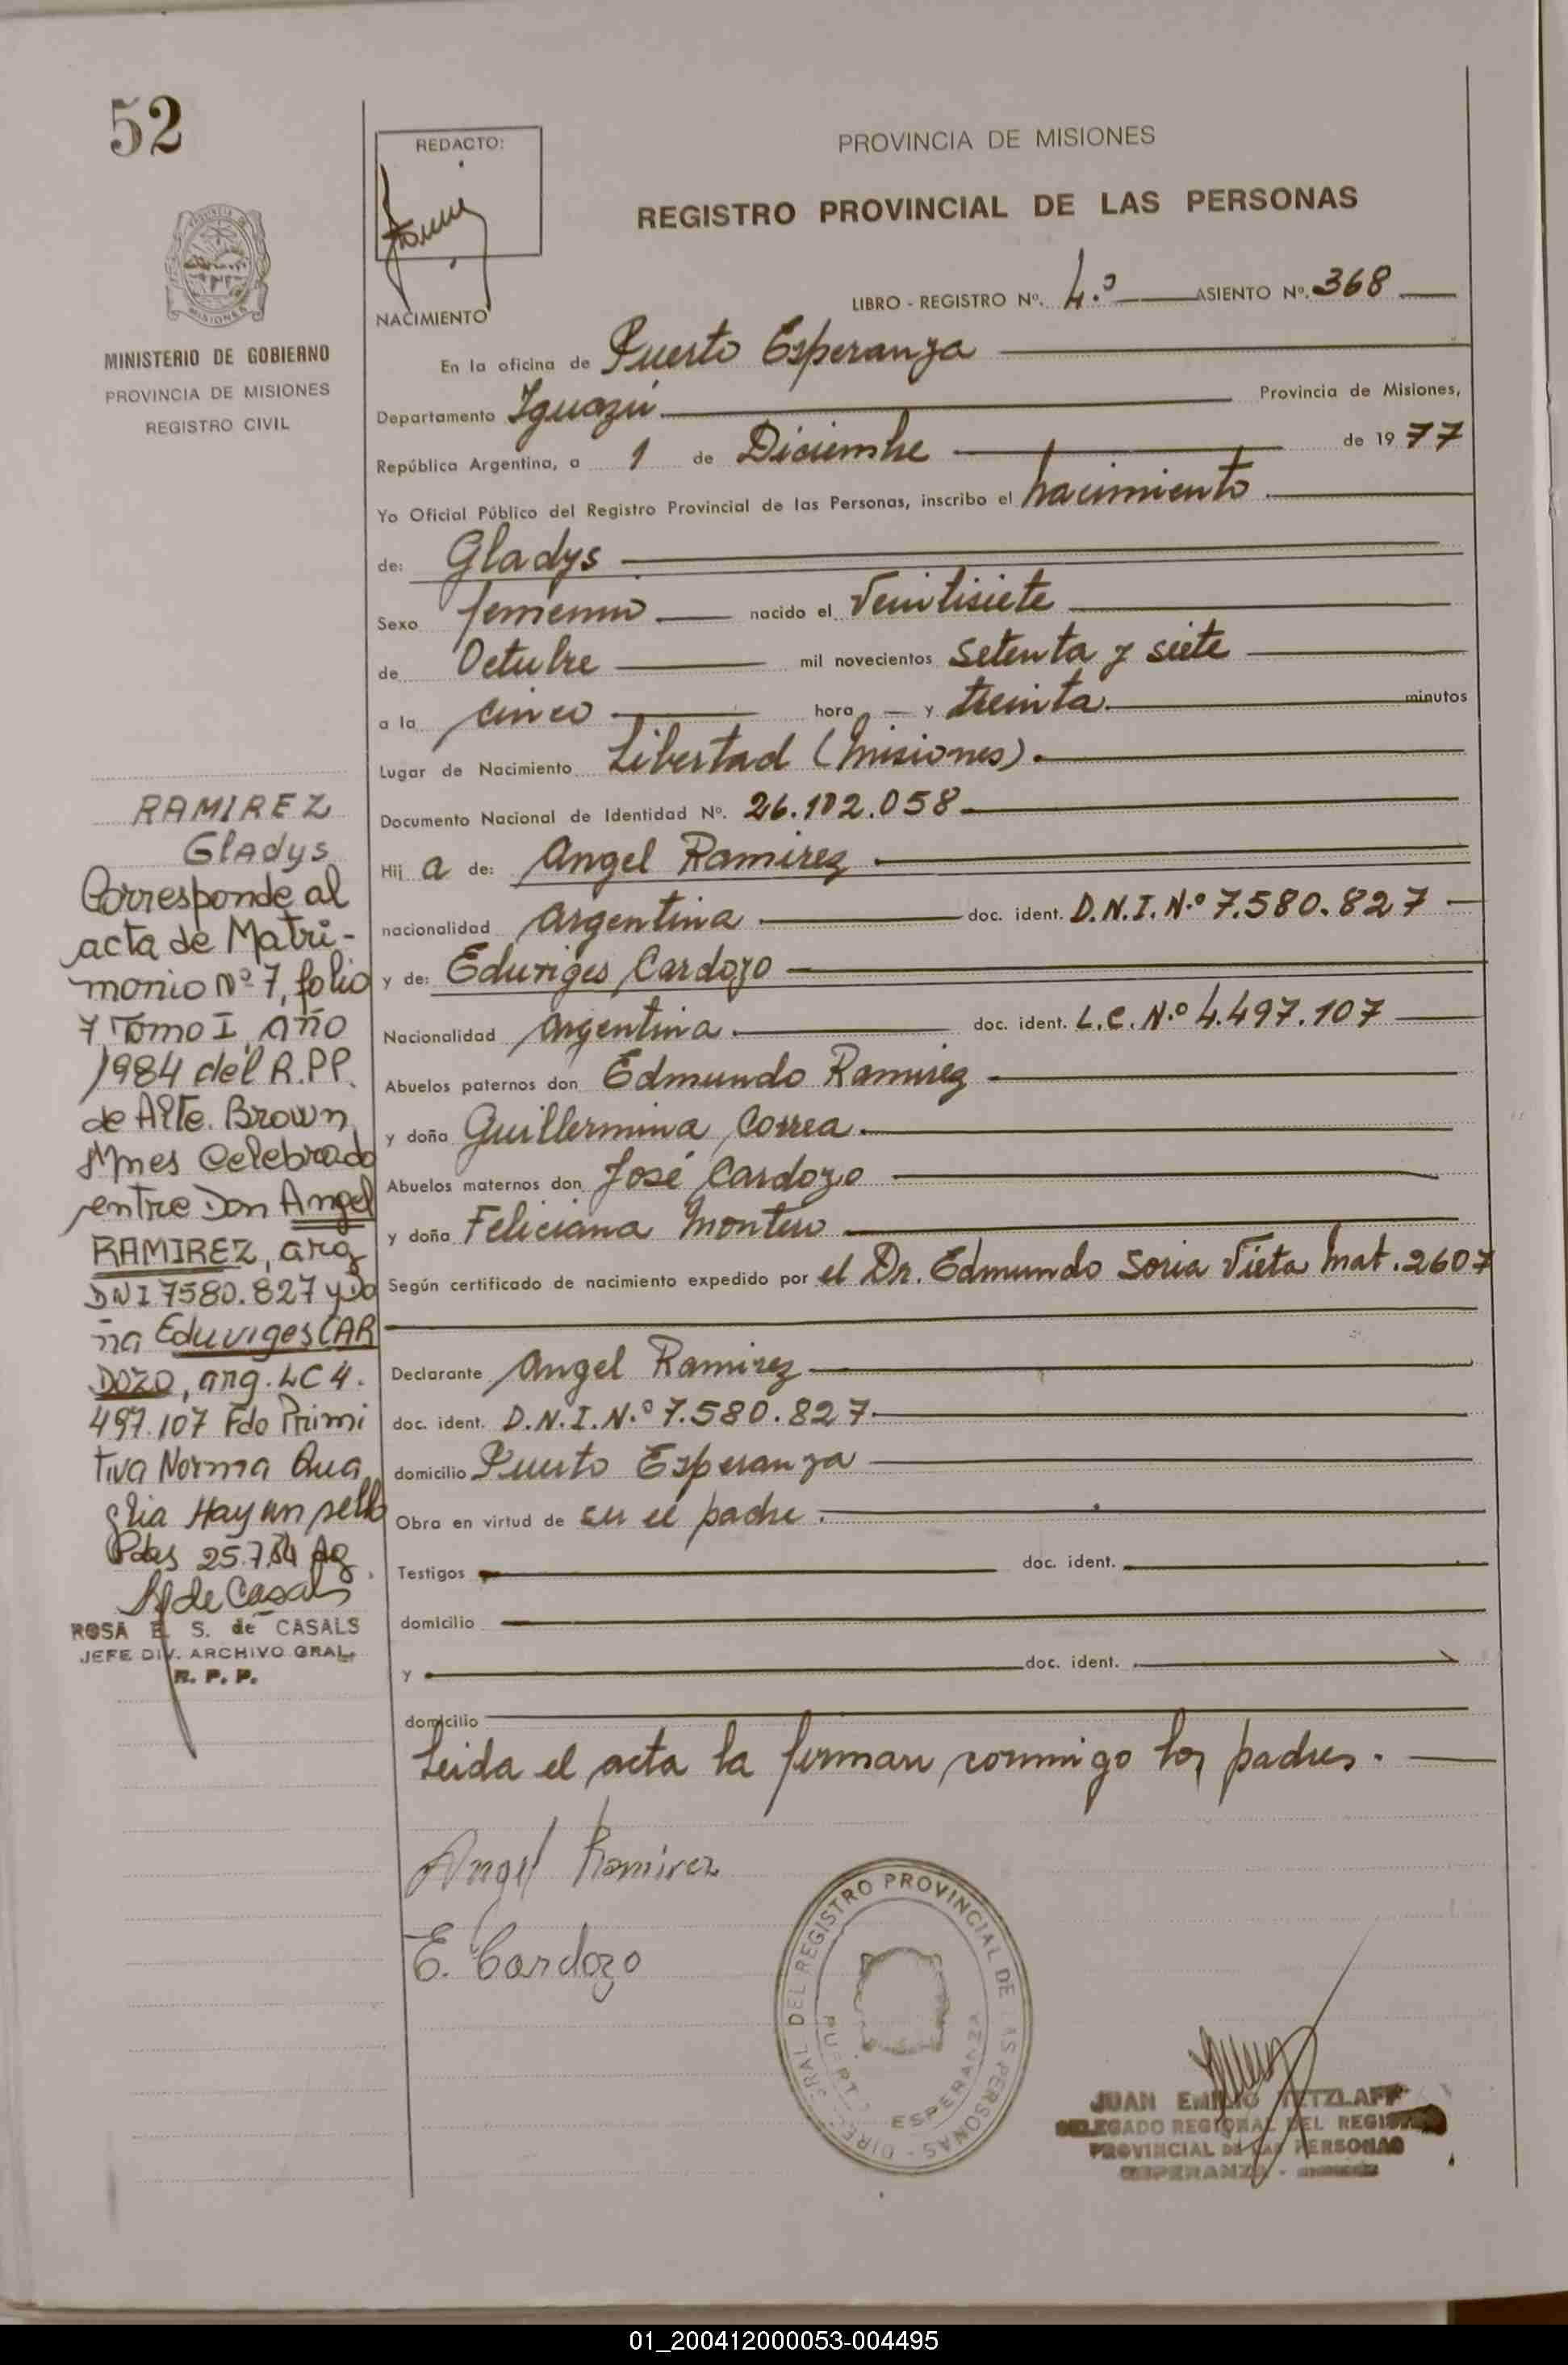 52
REDACTO:
PROVINCIA DE MISIONES
REGISTRO PROVINCIAL DE LAS PERSONAS
LIBRO - REGISTRO Nº. 4.º ASIENTO Nº. 368
NACIMIENTO
MISIONES
MINISTERIO DE GOBIERNO
PROVINCIA DE MISIONES
REGISTRO CIVIL
En la oficina de Puerto Esperanza
Departamento Iguazú Provincia de Misiones,
República Argentina, a 1 de Diciembre de 1977
Yo Oficial Público del Registro Provincial de las Personas, inscribo el nacimiento
de: Gladys
Sexo femenino nacido el Veintisiete
de Octubre mil novecientos setenta y siete
a la cinco hora y treinta minutos
Lugar de Nacimiento Libertad (Misiones).
Documento Nacional de Identidad Nº. 26.102.058
Hij a de: Angel Ramirez
nacionalidad argentina doc. ident. D.N.I. N.º 7.580.827
y de: Eduviges Cardozo
Nacionalidad argentina. doc. ident. L.C. N.º 4.497.107
Abuelos paternos don Edmundo Ramirez
y doña Guillermina Correa.
Abuelos maternos don José Cardozo
y doña Feliciana Montero
Según certificado de nacimiento expedido por el Dr. Edmundo Soria Vieta Mat. 2607
Declarante Angel Ramirez
doc. ident. D.N.I. N.º 7.580.827.
domicilio Puerto Esperanza
Obra en virtud de ser el padre.
Testigos doc. ident.
domicilio
y doc. ident.
domicilio
Leida el acta la firman conmigo los padres.
Angel Ramirez
E. Cardozo
RAMIREZ
Gladys
Corresponde al
acta de Matri-
monio Nº 7, folio
7 Tomo I, año
1984 del R.P.P.
de Alte. Brown
Mnes Celebrado
entre Don Angel
RAMIREZ, arg
DNI 7580.827 y Do
ña Eduviges CAR
DOZO, arg. LC 4.
497.107 Fdo Primi
tiva Norma Qua
glia Hay un sello
Pdas 25.7.84 Ag
S de Casals
ROSA E. S. de CASALS
JEFE DIV. ARCHIVO GRAL.
R. P. P.
DIREC. GRAL. DEL REGISTRO PROVINCIAL DE LAS PERSONAS
PUERTO ESPERANZA
JUAN EMILIO TETZLAFF
DELEGADO REGIONAL DEL REGISTRO
PROVINCIAL DE LAS PERSONAS
ESPERANZA -
01_200412000053-004495